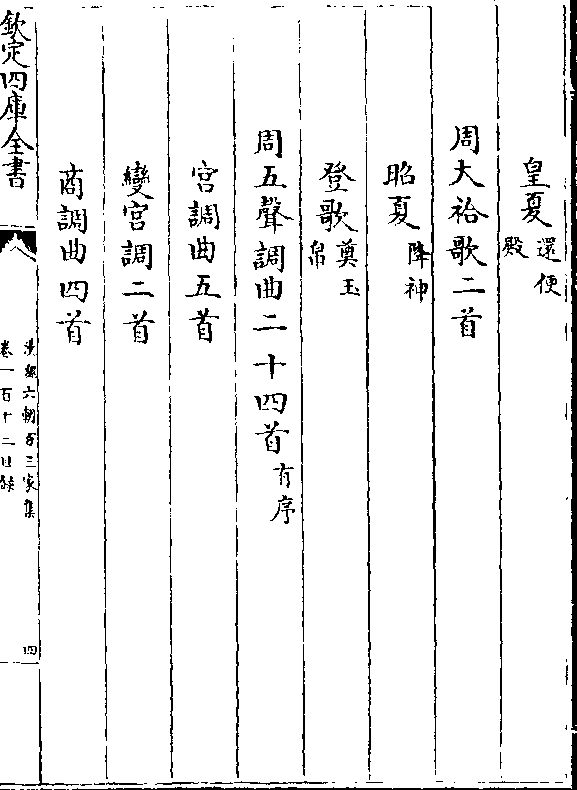 皇夏還便殿
周大祫歌二首
昭夏降神
登歌奠玉帛
周五聲調曲二十四首有序
宮調曲五首
變宮調二首
商調曲四首
欽定四庫全書
漢魏六朝百三家集
卷一百十二目錄
四